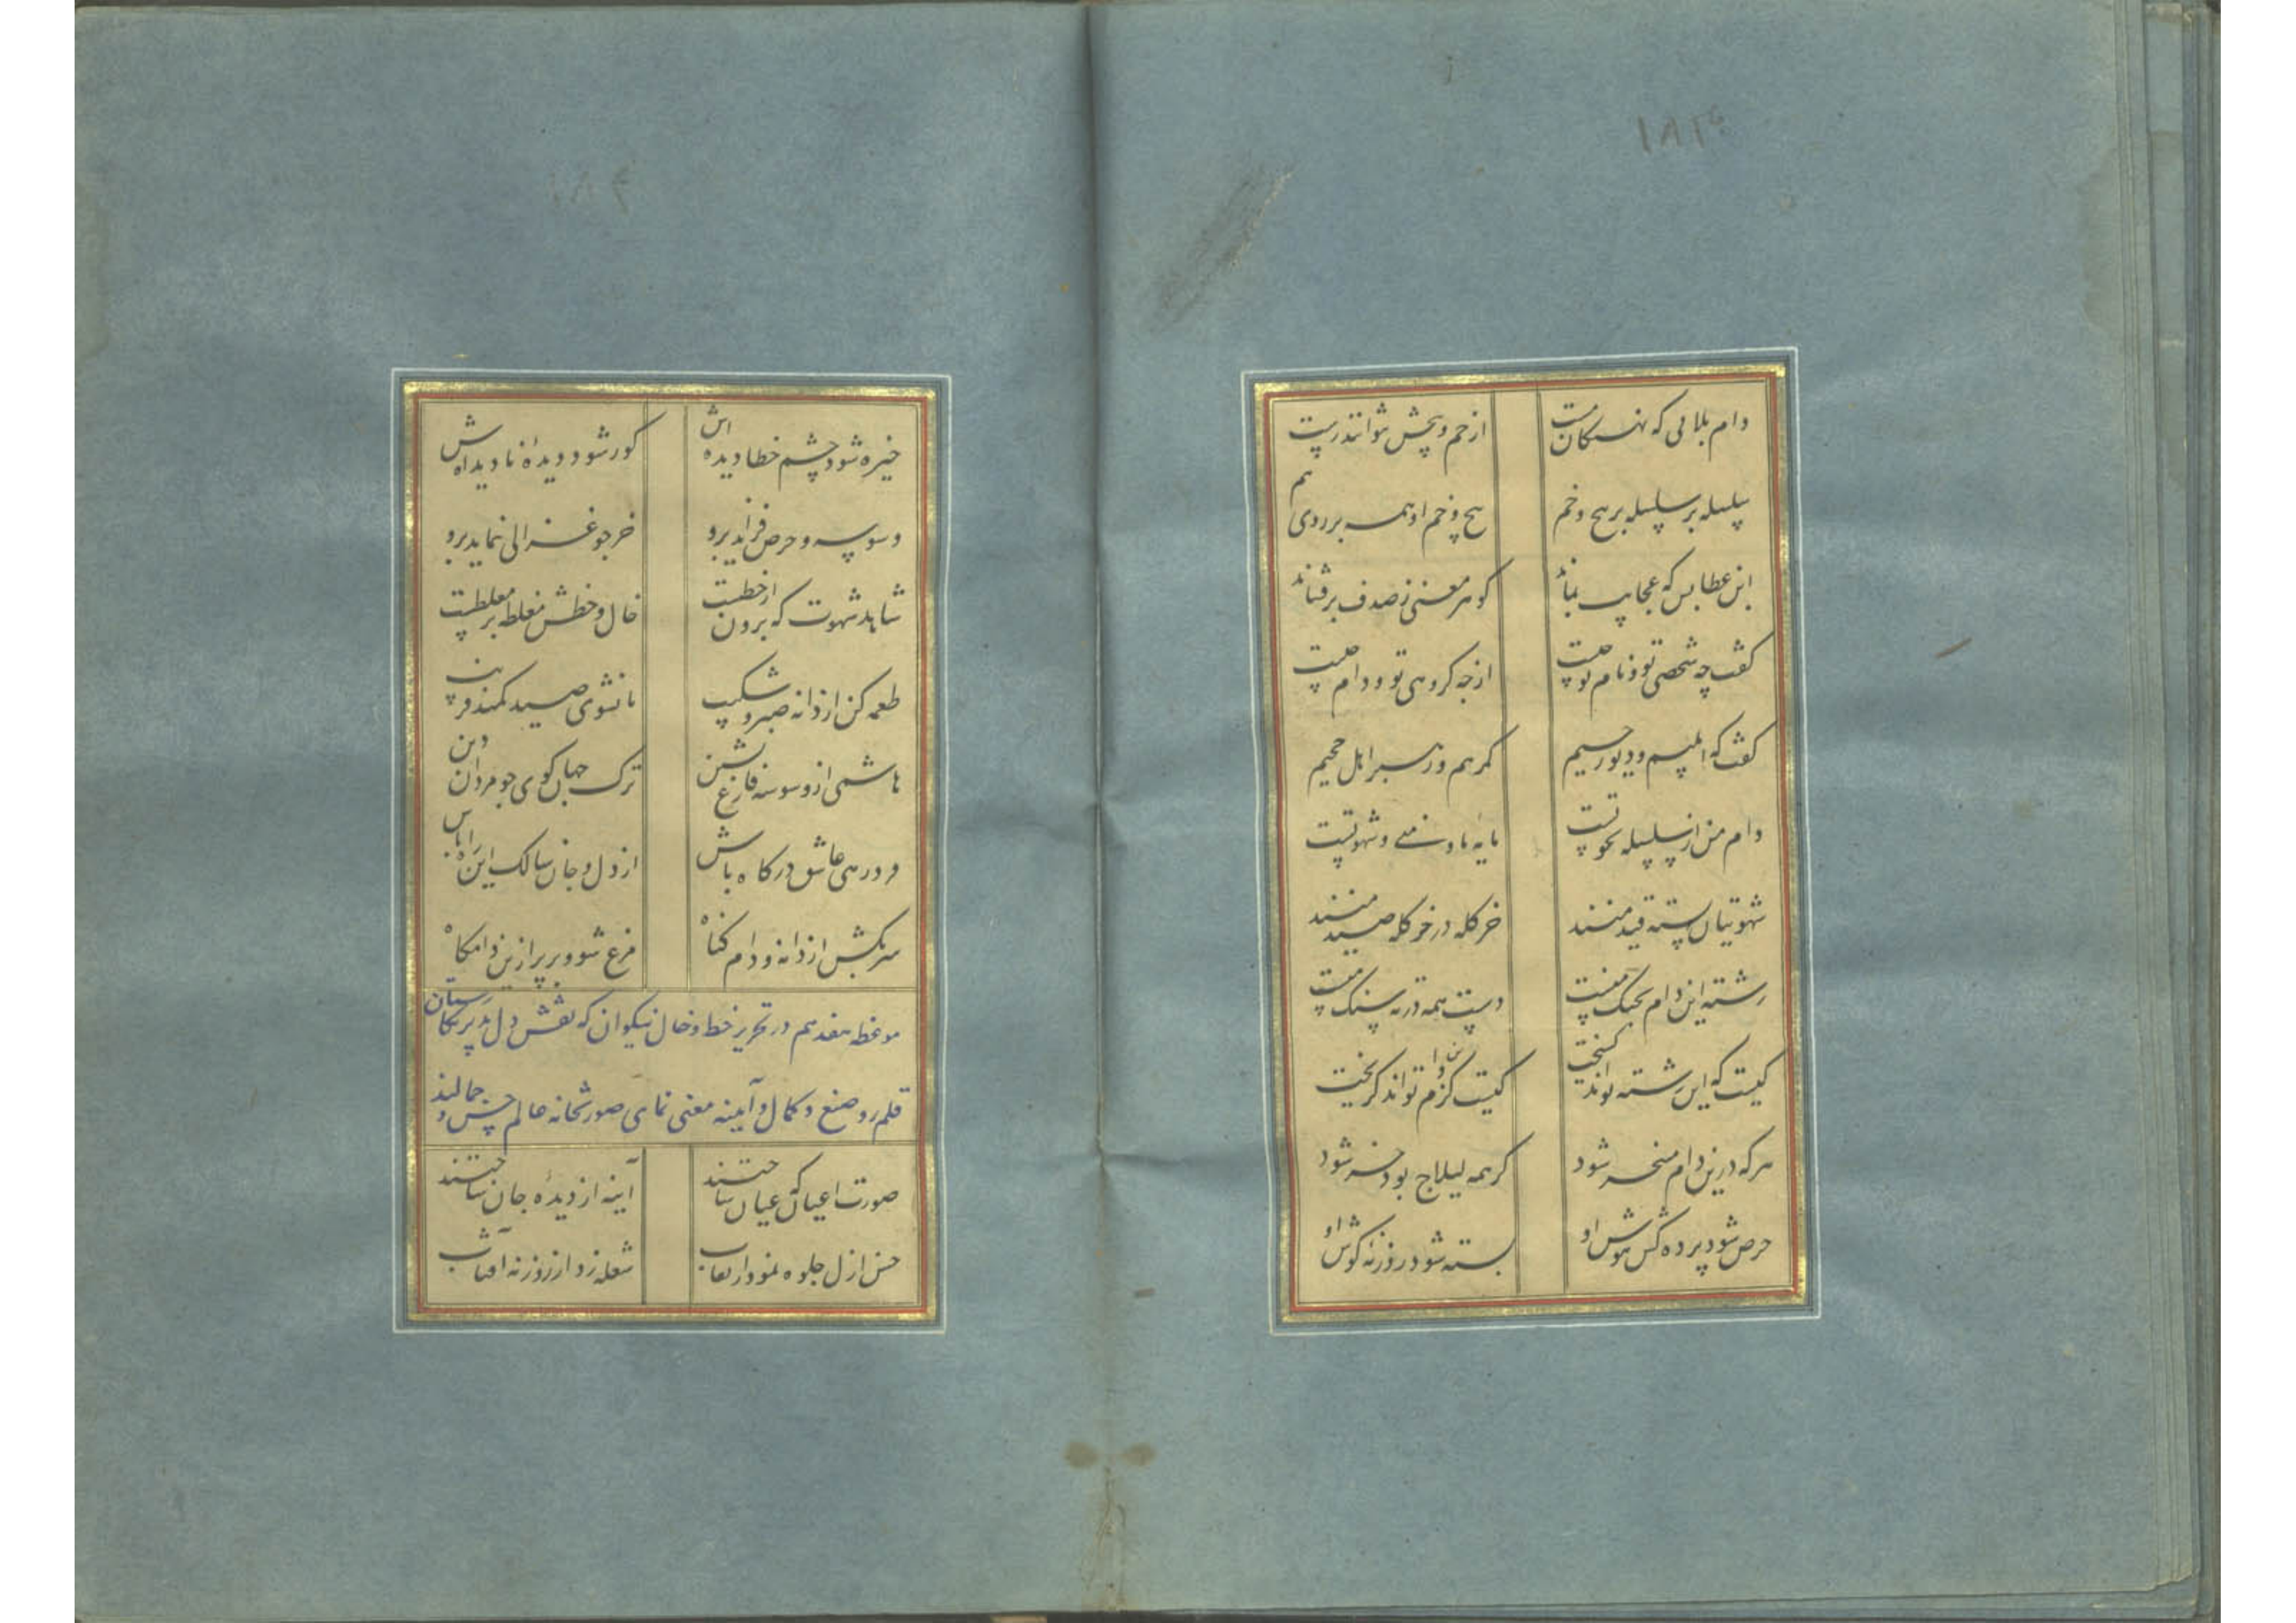 ۱۸۳
دام بلائی که نهنگان مست از خم و پیچش نتوانند رست
سلسله بر سلسله پر پیچ و خم پیچ و خم او همه بر روی هم
گوهر معنی ز صدف برفشاند
گفت چه شخصی تو و نام تو چیست از چه گروهی تو و دام چیست
گفت که ابلیسم و دیو رجیم گمرهم و رهبر اهل جحیم
دام من از سلسله نخوتست مایه ما و منی و شهوتست
شهوتیان بسته قید منند خر گله در خر گله صید منند
رشته این دام بچنگ منست دست همه در ته سنگ منست
کیست که این رشته تواند گسیخت کیست کزین دام تواند گریخت
هر که درین دام مسخر شود گر همه لیلاج بود خر شود
حرص شود پرده کش هوش او بسته شود روزنه گوش او
۱۸۴
خیره شود چشم خطا دیده اش کور شود دیده نادیده اش
وسوسه و حرص فزاید برو خر چو غزالی نماید برو
شاهد شهوت که برون از خطست خال و خطش مغلطه بر مغلطست
طعمه کن از دانه صبر و شکیب تا نشوی صید کمند فریب
هاشمی از وسوسه فارغ نشین ترک جهان گوی چو مردان دین
در ره عاشق درگاه باش از دل و جان سالک این راه باش
سر بکش از دانه و دام گناه مرغ شو و برپر ازین دامگاه
موعظه هفدهم در تحریر خط و خال نیکوان که نقش دل پذیر نگارستان
قلمرو صنع و کمال و آیینه معنی نمای صورتخانه عالم حسن و جمالند
صورت اعیان که عیان ساختند آینه از دیده جان ساختند
حسن ازل جلوه نمود از نقاب شعله زد از روزنه آفتاب